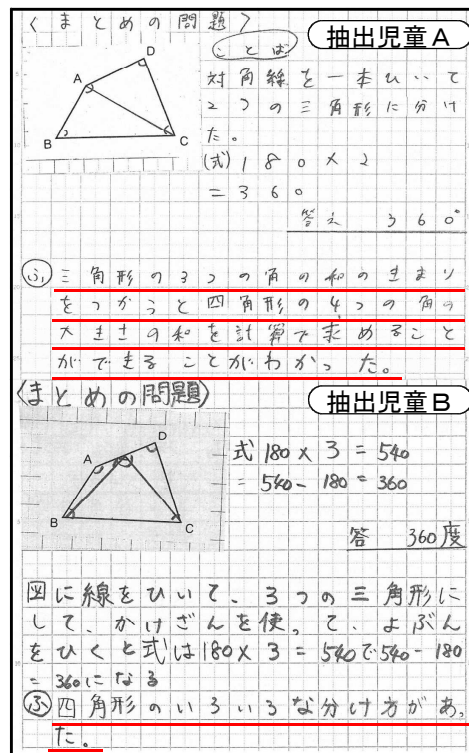 〈まとめの問題〉
抽出児童A
D
A
B
C
ことば
対角線を一本ひいて
2つの三角形に分け
た。
(式)180×2
=360
答え 360°
ふ 三角形の3つの角の和のきまり
をつかうと四角形の4つの角の
大きさの和を計算で求めること
ができることがわかった。
〈まとめの問題〉
抽出児童B
D
A
B
C
式 180×3=540
=540-180=360
答 360度
図に線をひいて、3つの三角形に
して、かけざんを使って、よぶん
をひくと式は180×3=540で540-180
=360になる
ふ 四角形のいろいろな分け方があっ
た。